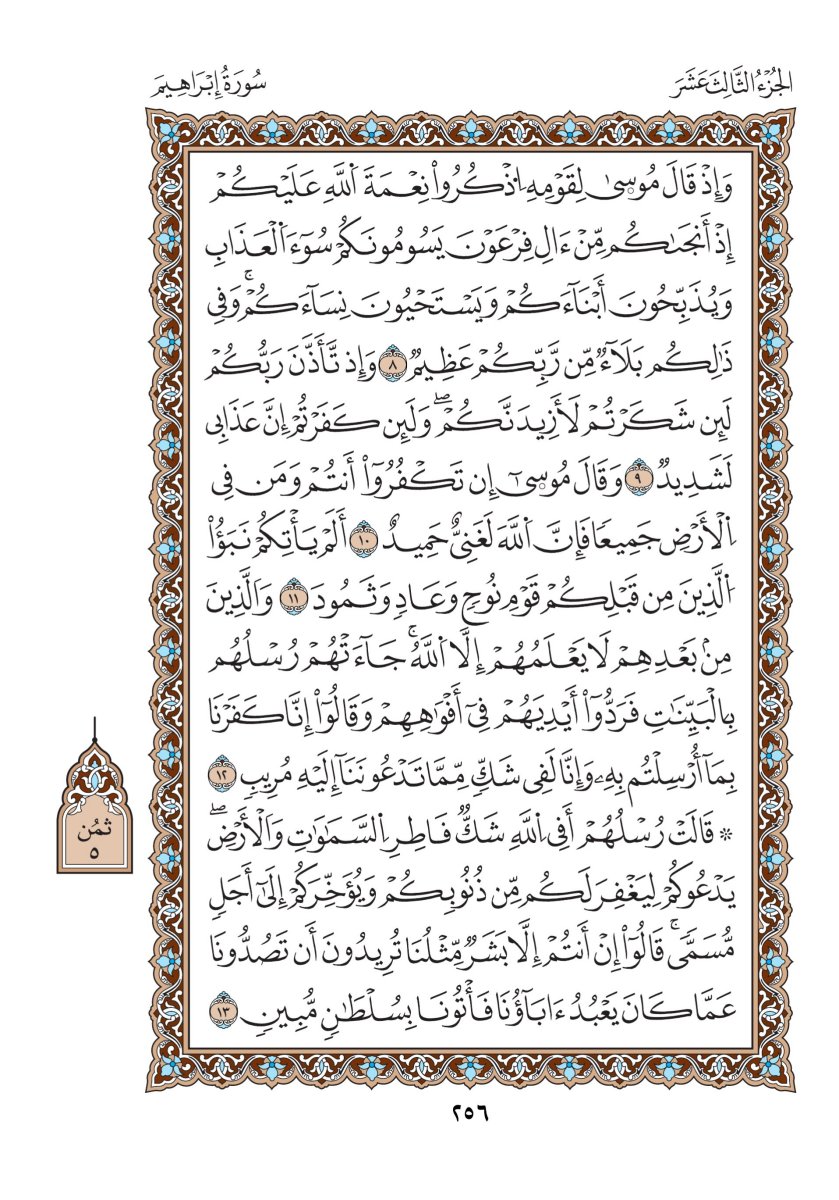 الجُزْءُ الثَّالِثَ عَشَرَ
سُورَةُ إِبْرَاهِيمَ
وَإِذْ قَالَ مُوسٜىٰ لِقَوْمِهِ اِذْكُرُواْ نِعْمَةَ اَللَّهِ عَلَيْكُمْ
إِذْ أَنجَىٰكُم مِّنْ ءَالِ فِرْعَوْنَ يَسُومُونَكُمْ سُوٓءَ اَلْعَذَابِ
وَيُذَبِّحُونَ أَبْنَآءَكُمْ وَيَسْتَحْيُونَ نِسَآءَكُمْۚ وَفِي
ذَٰلِكُم بَلَآءٌ مِّن رَّبِّكُمْ عَظِيمٌ ٨ وَإِذ تَّأَذَّنَ رَبُّكُمْ
لَئِن شَكَرْتُمْ لَأَزِيدَنَّكُمْۖ وَلَئِن كَفَرْتُمْ إِنَّ عَذَابِي
لَشَدِيدٌ ٩ وَقَالَ مُوسٜىٓ إِن تَكْفُرُوٓاْ أَنتُمْ وَمَن فِي
اِلْأَرْضِ جَمِيعًا فَإِنَّ اَللَّهَ لَغَنِيٌّ حَمِيدٌ ١٠ أَلَمْ يَأْتِكُمْ نَبَؤُاْ
اُلَّذِينَ مِن قَبْلِكُمْ قَوْمِ نُوحٍ وَعَادٍ وَثَمُودَ ١١ وَالَّذِينَ
مِنۢ بَعْدِهِمْ لَا يَعْلَمُهُمْ إِلَّا اَللَّهُۚ جَآءَتْهُمْ رُسُلُهُم
بِالْبَيِّنَٰتِ فَرَدُّوٓاْ أَيْدِيَهُمْ فِيٓ أَفْوَٰهِهِمْ وَقَالُوٓاْ إِنَّا كَفَرْنَا
بِمَآ أُرْسِلْتُم بِهِۦ وَإِنَّا لَفِي شَكٍّ مِّمَّا تَدْعُونَنَآ إِلَيْهِ مُرِيبٍ ١٢
۞ قَالَتْ رُسُلُهُمْ أَفِي اِللَّهِ شَكٌّ فَاطِرِ اِلسَّمَٰوَٰتِ وَالْأَرْضِۖ
يَدْعُوكُمْ لِيَغْفِرَ لَكُم مِّن ذُنُوبِكُمْ وَيُؤَخِّرَكُمْ إِلَىٰٓ أَجَلٍ
مُّسَمًّىۚ قَالُوٓاْ إِنْ أَنتُمْ إِلَّا بَشَرٌ مِّثْلُنَا تُرِيدُونَ أَن تَصُدُّونَا
عَمَّا كَانَ يَعْبُدُ ءَابَآؤُنَا فَأْتُونَا بِسُلْطَٰنٍ مُّبِينٍ ١٣
ثُمُن
٥
٢٥٦